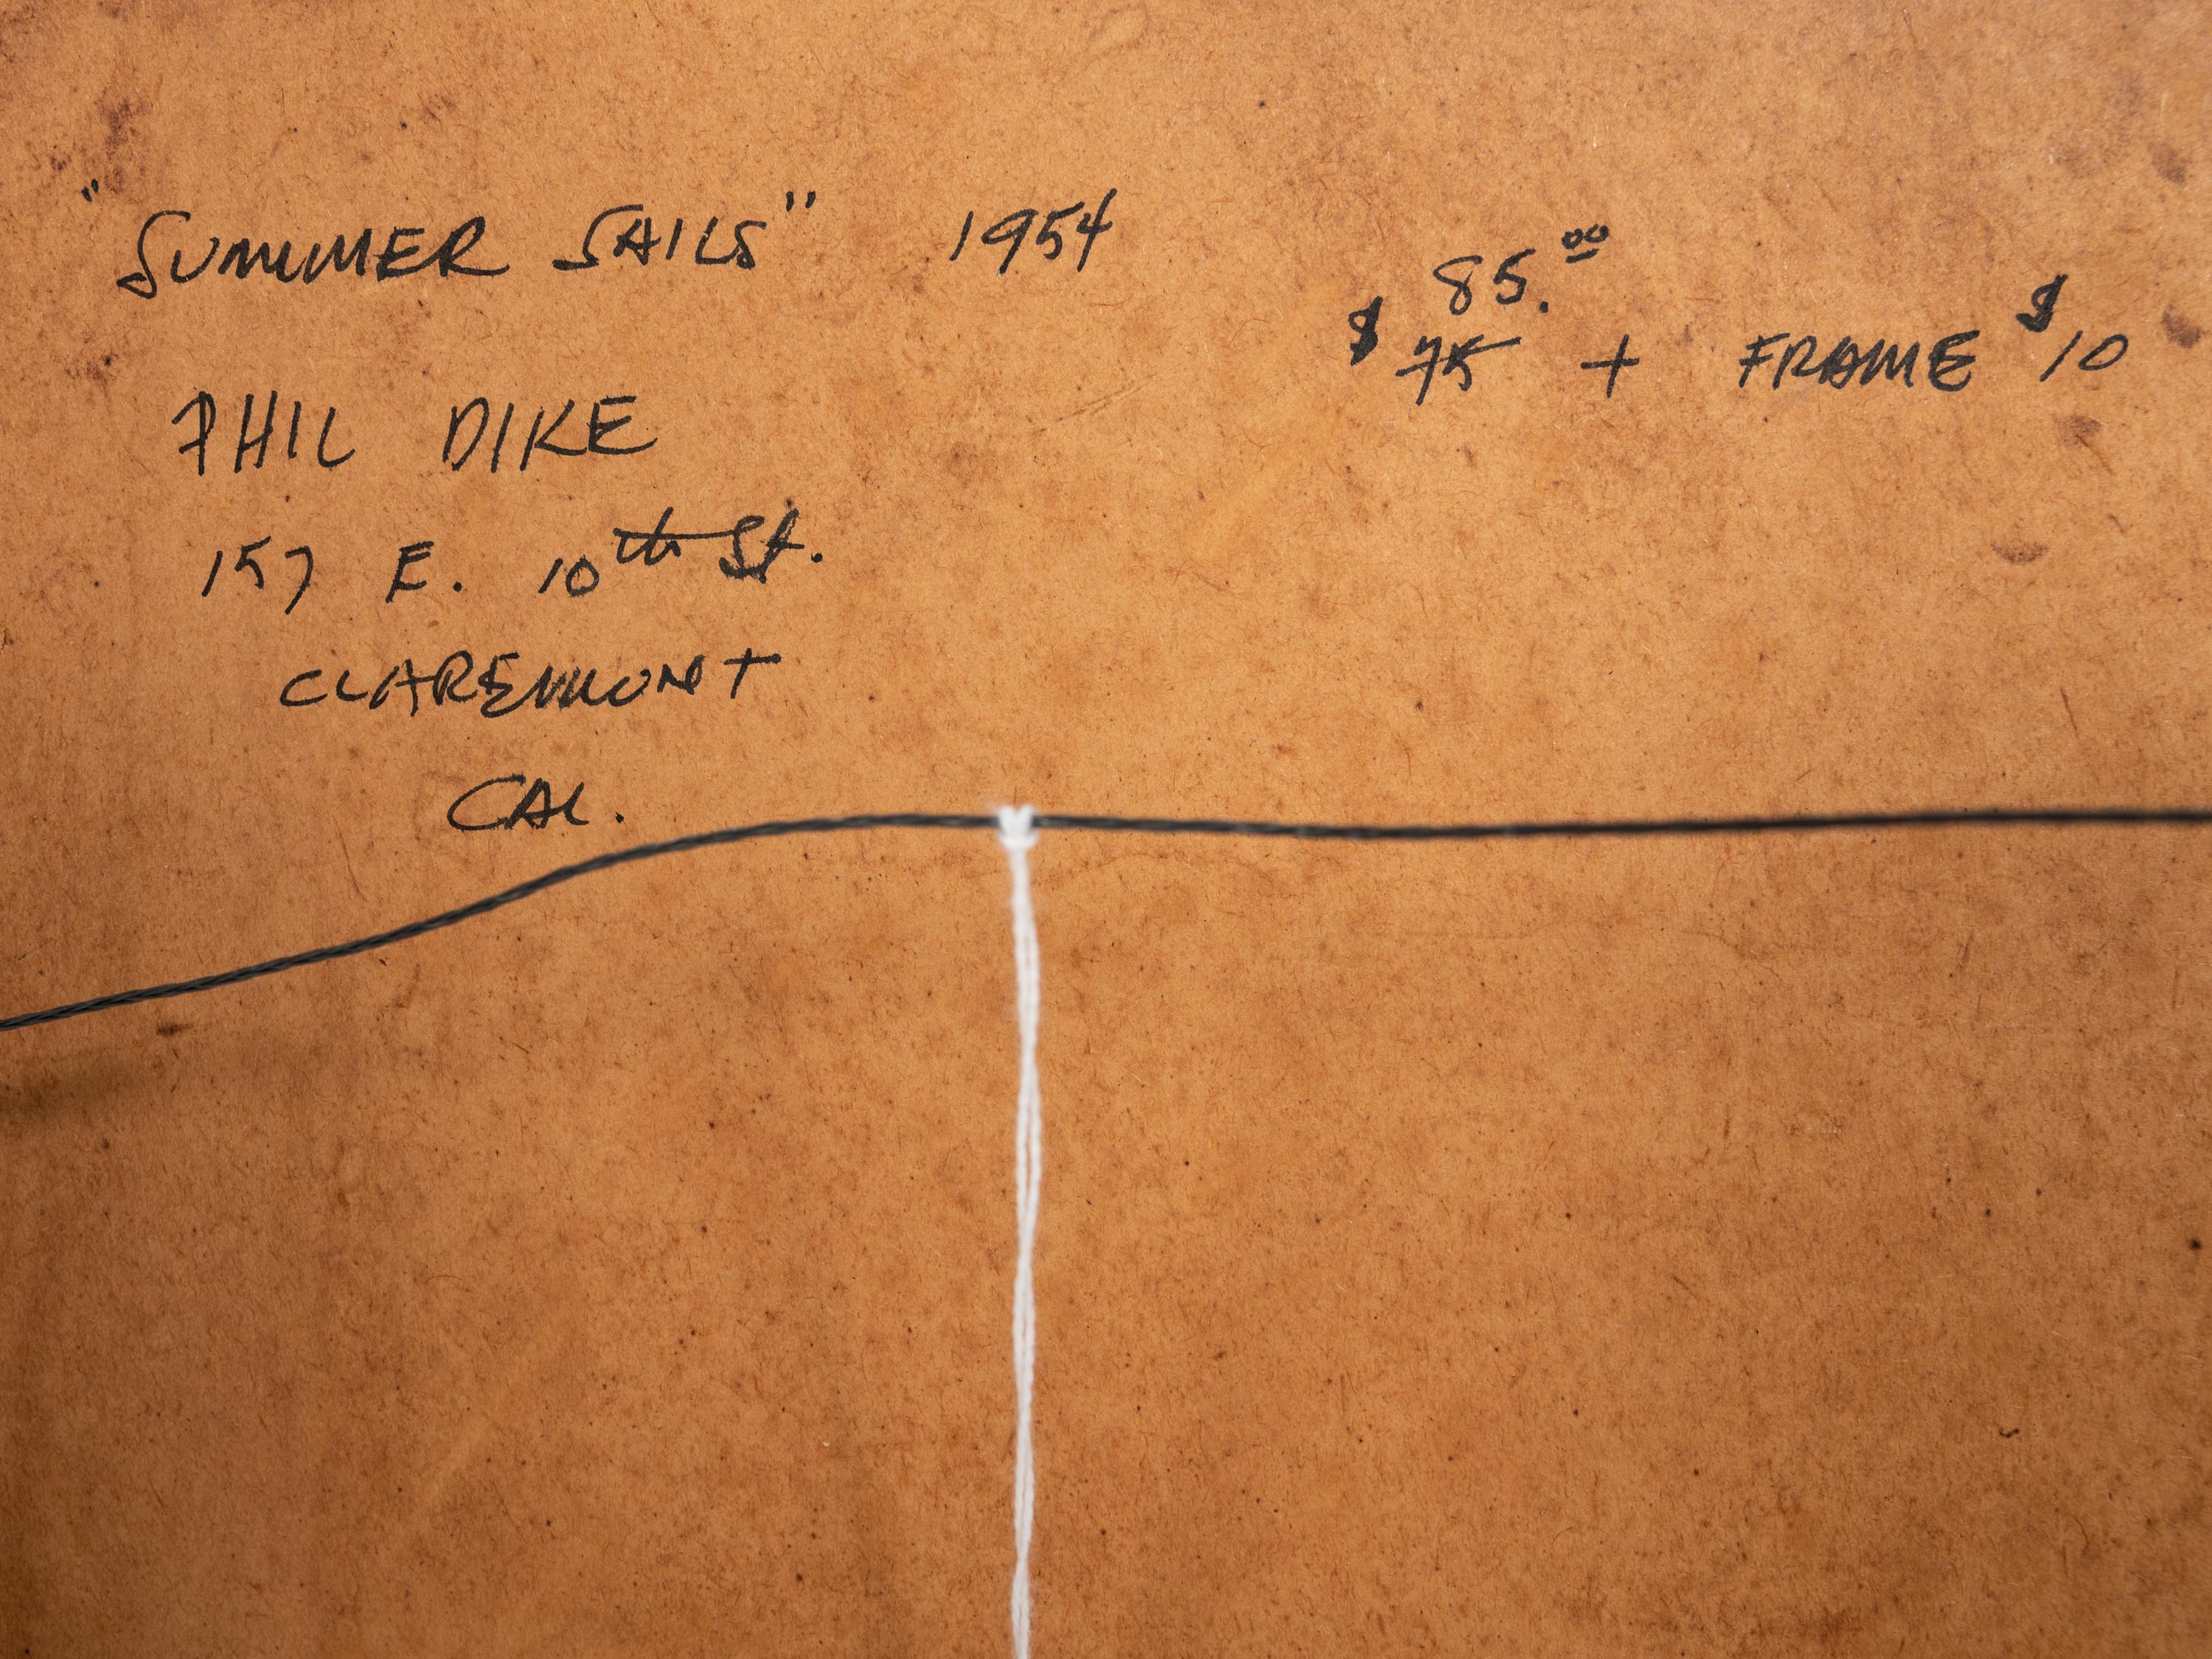 "SUMMER SAILS" 1954
85.00
$ 75 + FRAME $10
PHIL DIKE
157 E. 10th St.
CLAREMONT
CAL.